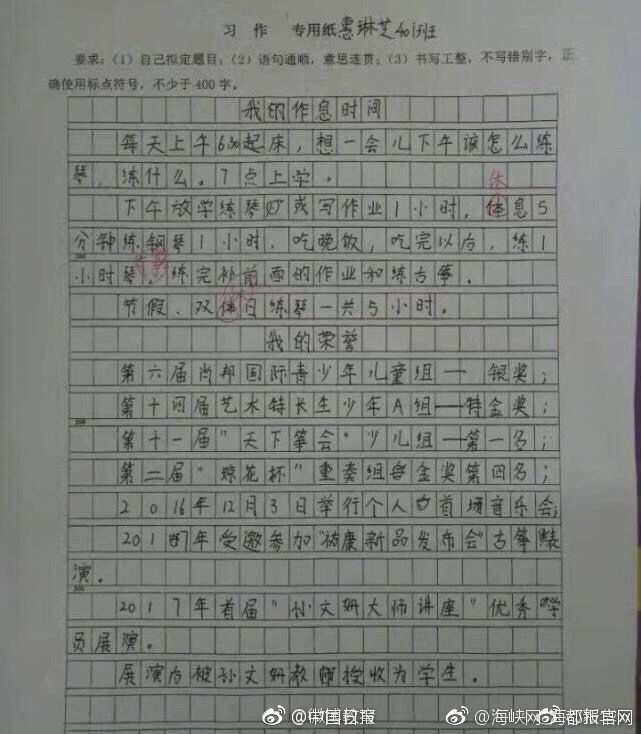 习 作 专用纸 惠琳芝 401班
要求:(1)自己拟定题目;(2)语句通顺,意思连贯;(3)书写工整,不写错别字,正
确使用标点符号,不少于400字。
我的作息时间
每天上午630起床,想一会儿下午该怎么练
琴,练什么。7点上学,
休
下午放学练琴或写作业1小时,体息5
分钟练钢琴1小时,吃晚饭,吃完以后,练1
100
小时琴,练完补前面的作业和练古筝.
节假、双体日练琴一共5小时。
我的荣誉
第六届肖邦国际青少年儿童组—银奖;
第十四届艺术特长生少年A组—特金奖;
200
第十一届"天下筝会"少儿组—第一名;
第二届"琼花杯"重奏组金奖第四名;
2016年12月3日举行个人首场音乐会;
2017年受邀参加"祐康新品发布会"古筝表
演.
300
2017年首届"孙文妍大师讲座"优秀学
员展演。
展演后被孙文妍教师授收为学生.
@中国教育报
@海峡网
海都报官网